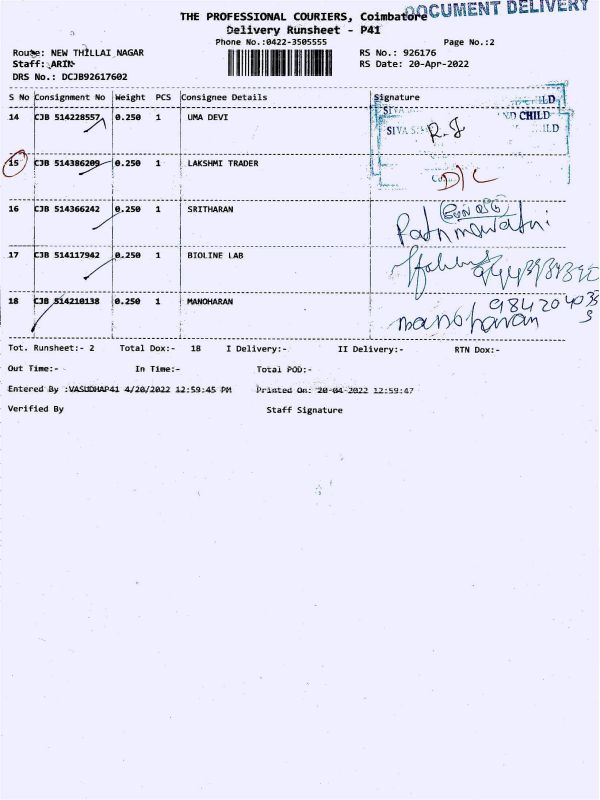 DOCUMENT DELIVERY
THE PROFESSIONAL COURIERS, Coimbatore
Delivery Runsheet - P41
Phone No.:0422-3505555 Page No.:2
Route: NEW THILLAI NAGAR RS No.: 926176
Staff: ARIN RS Date: 20-Apr-2022
DRS No.: DCJB92617602
S No Consignment No Weight PCS Consignee Details Signature
14 CJB 514228557 0.250 1 UMA DEVI
SIVA
CHILD
15 CJB 514386209 0.250 1 LAKSHMI TRADER D/C
16 CJB 514366242 0.250 1 SRITHARAN
17 CJB 514117942 0.250 1 BIOLINE LAB
18 CJB 514210138 0.250 1 MANOHARAN manoharan
Tot. Runsheet:- 2 Total Dox:- 18 I Delivery:- II Delivery:- RTN Dox:-
Out Time:- In Time:- Total POD:-
Entered By :VASUDHAP41 4/20/2022 12:59:45 PM Printed On: 20-04-2022 12:59:47
Verified By Staff Signature